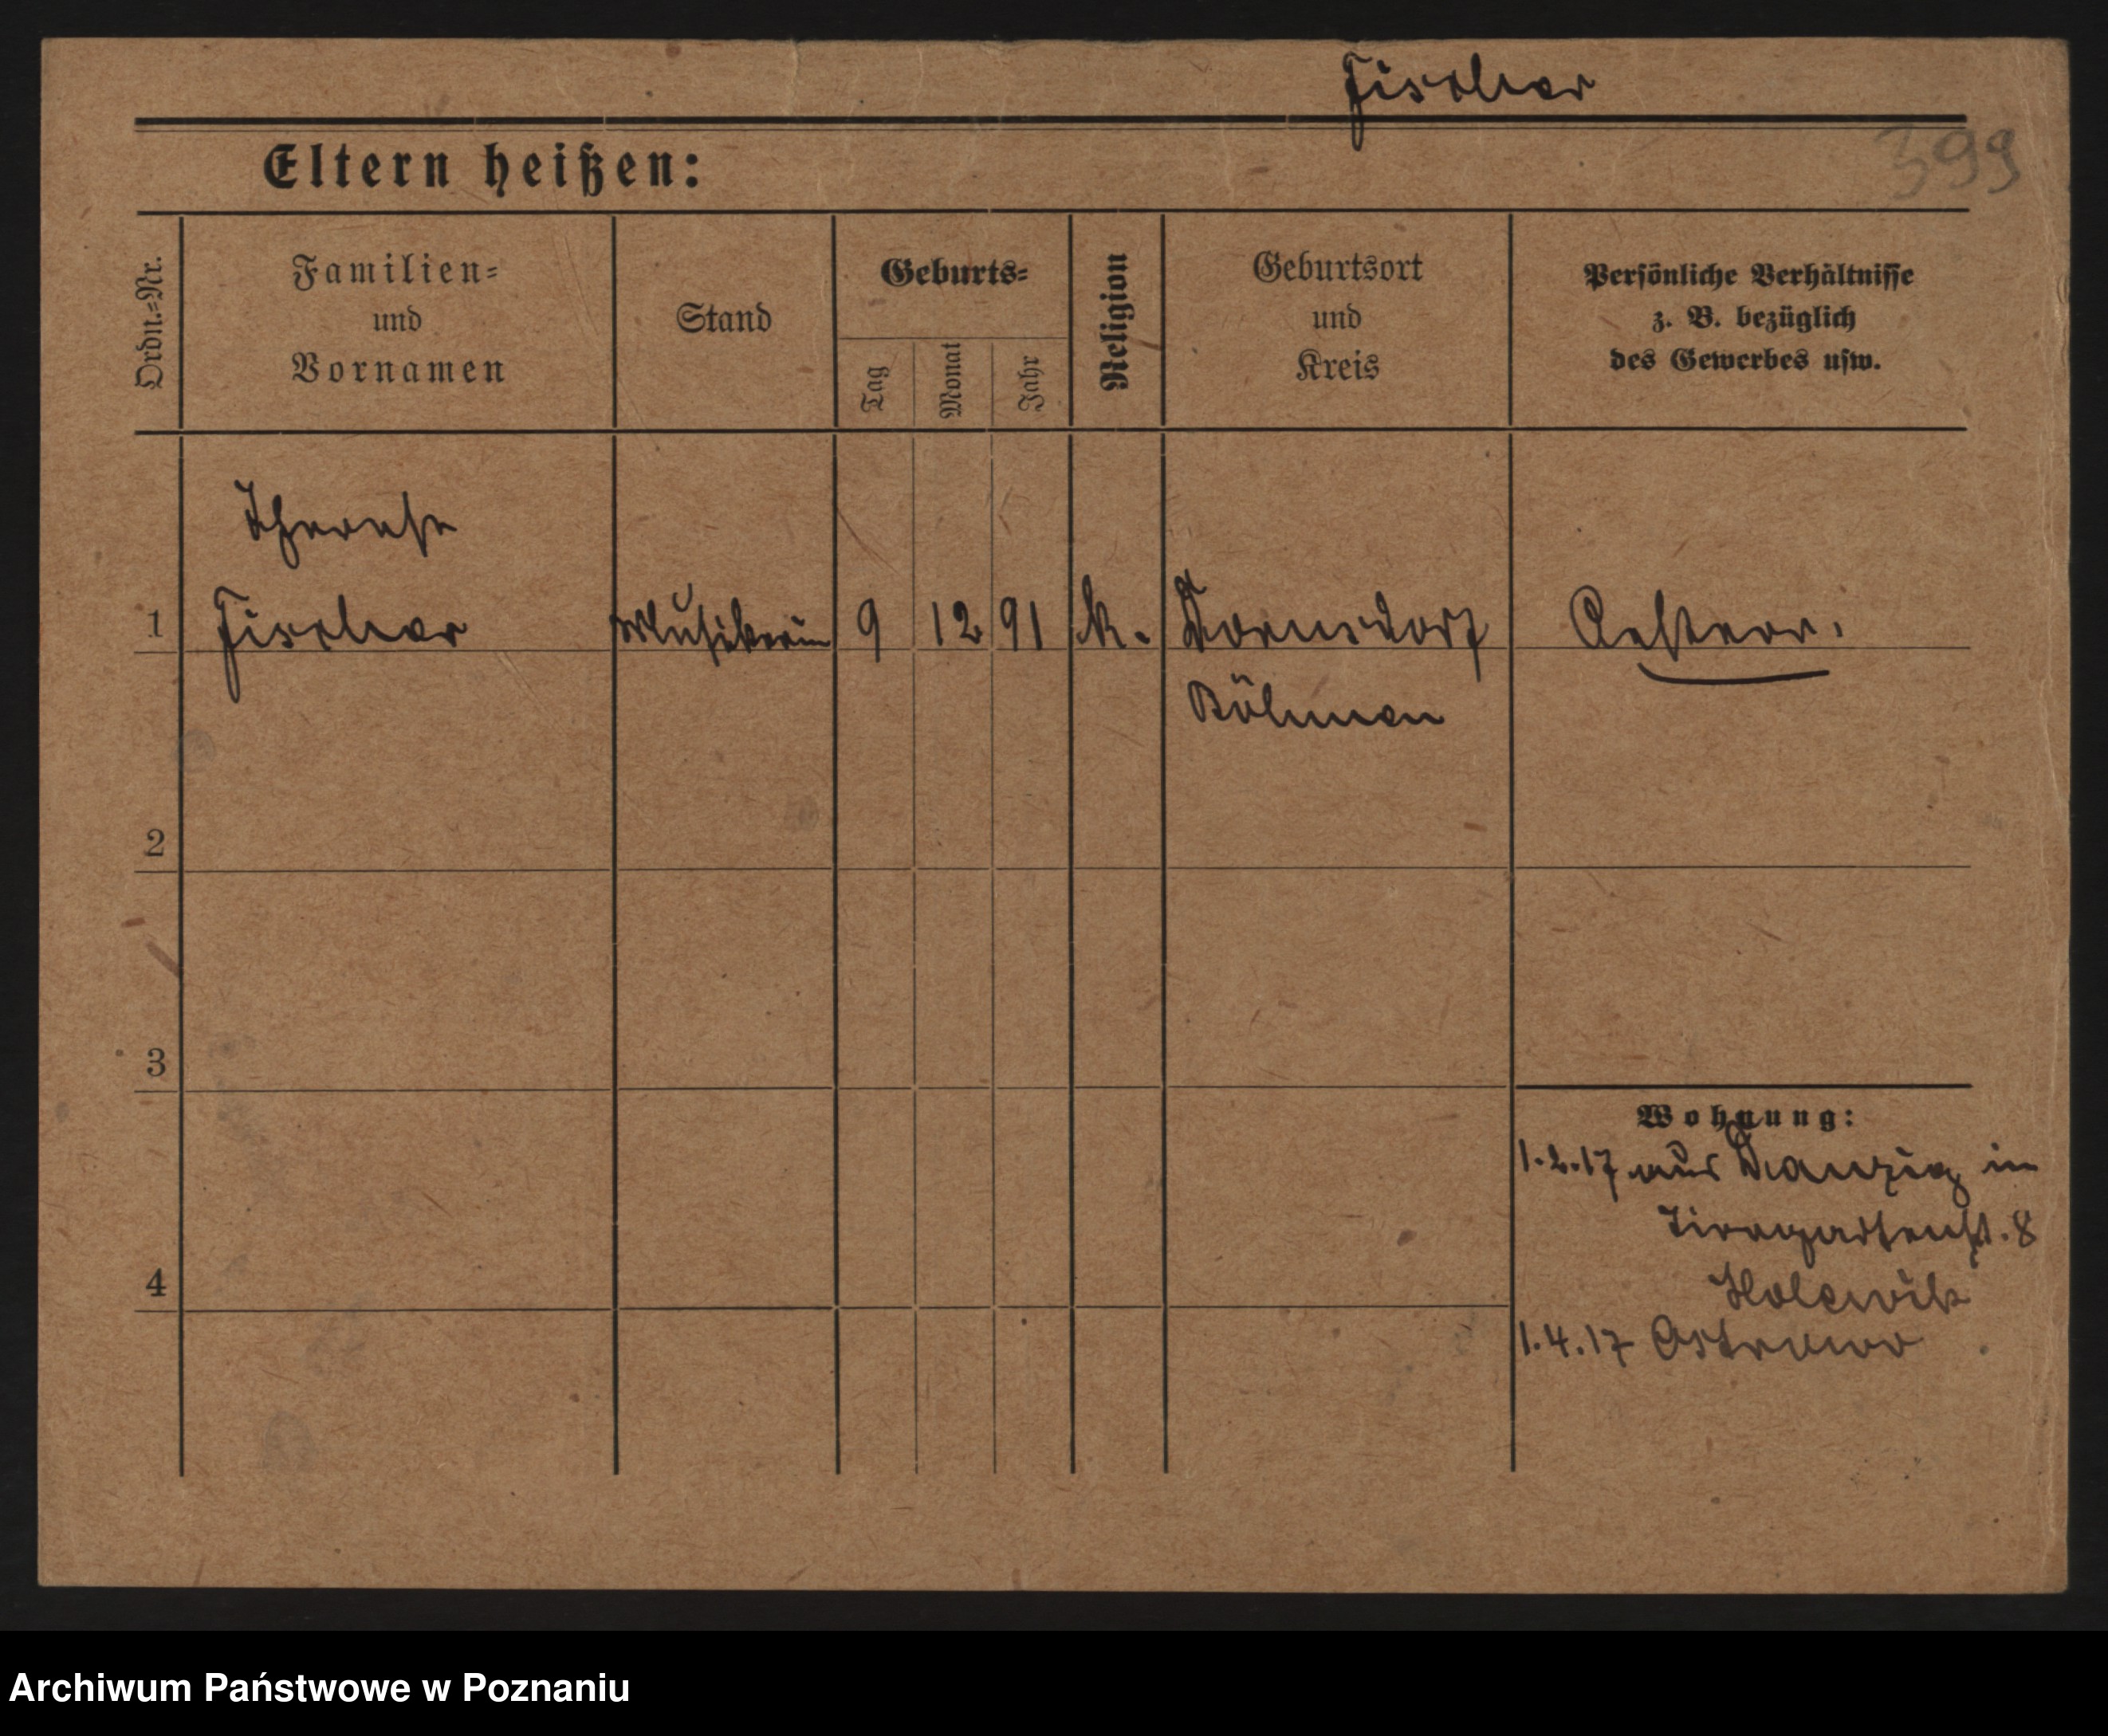 Fischer
399
Eltern heißen:
Ordn.=Nr.
Familien=
und
Vornamen
Stand
Geburts=
Tag
Monat
Jahr
Religion
Geburtsort
und
Kreis
Persönliche Verhältnisse
z. B. bezüglich
des Gewerbes usw.
Therese
1 Fischer Musikerin 9 12 91 k. Dornsdorf Oesterr.
Böhmen
2
3
Wohnung:
1.2.17 aus Danzig in
Tiergartenst. 8
4
1.4.17 Ostrowo
Archiwum Państwowe w Poznaniu